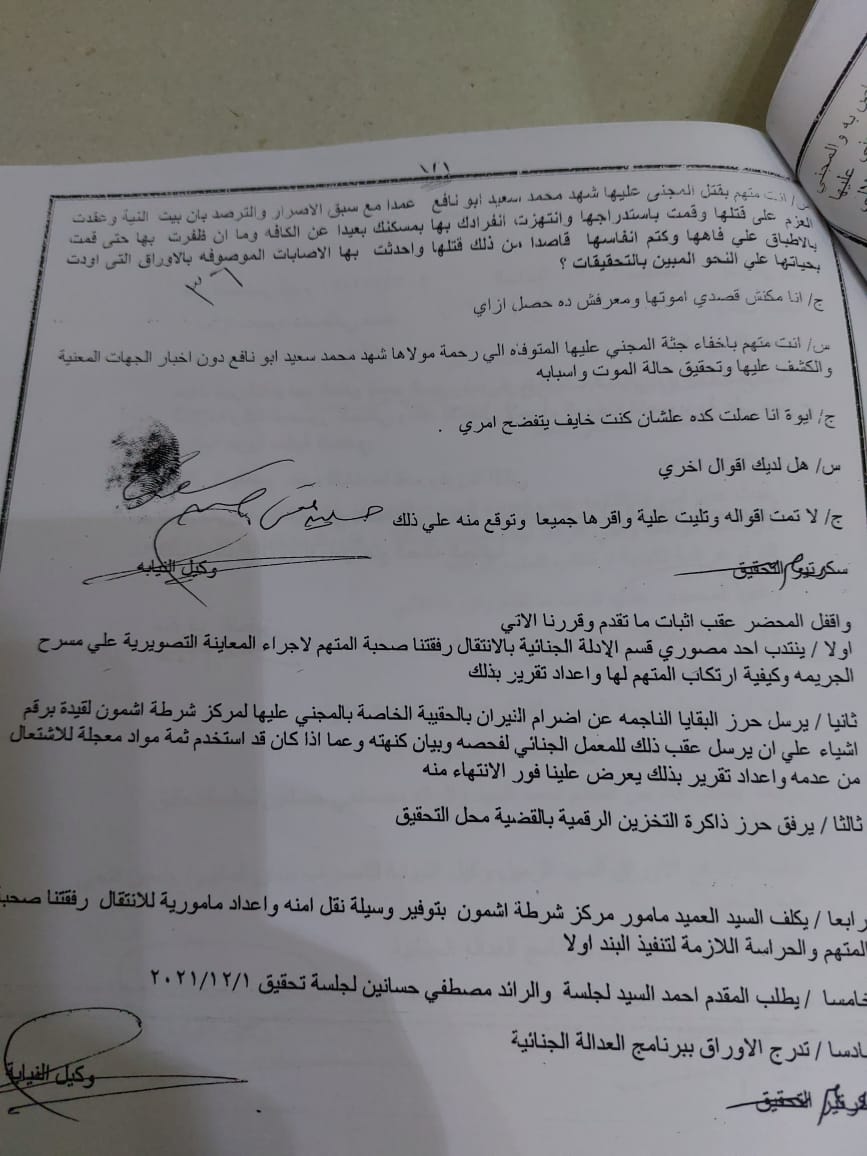 ١٢١
س/ انت متهم بقتل المجنى عليها شهد محمد سعيد ابو نافع عمدا مع سبق الاصرار والترصد بان بيت النية وعقدت
العزم على قتلها وقمت باستدراجها وانتهزت انفرادك بها بمسكنك بعيدا عن الكافه وما ان ظفرت بها حتى قمت
بالاطباق علي فاهها وكتم انفاسها قاصدا من ذلك قتلها واحدثت بها الاصابات الموصوفه بالاوراق التى اودت
بحياتها علي النحو المبين بالتحقيقات ؟
ج/ انا مكنش قصدي اموتها ومعرفش ده حصل ازاي
س/ انت متهم باخفاء جثة المجني عليها المتوفاه الي رحمة مولاها شهد محمد سعيد ابو نافع دون اخبار الجهات المعنية
والكشف عليها وتحقيق حالة الموت واسبابه
ج/ ايوة انا عملت كده علشان كنت خايف يتفضح امري .
س/ هل لديك اقوال اخري
ج/ لا تمت اقواله وتليت علية واقرها جميعا وتوقع منه علي ذلك
سكرتير التحقيق
وكيل النيابه
واقفل المحضر عقب اثبات ما تقدم وقررنا الاتي
اولا / ينتدب احد مصوري قسم الادلة الجنائية بالانتقال رفقتنا صحبة المتهم لاجراء المعاينة التصويرية علي مسرح
الجريمه وكيفية ارتكاب المتهم لها واعداد تقرير بذلك
ثانيا / يرسل حرز البقايا الناجمه عن اضرام النيران بالحقيبة الخاصة بالمجني عليها لمركز شرطة اشمون لقيدة برقم
اشياء علي ان يرسل عقب ذلك للمعمل الجنائي لفحصه وبيان كنهته وعما اذا كان قد استخدم ثمة مواد معجلة للاشتعال
من عدمه واعداد تقرير بذلك يعرض علينا فور الانتهاء منه
ثالثا / يرفق حرز ذاكرة التخزين الرقمية بالقضية محل التحقيق
رابعا / يكلف السيد العميد مامور مركز شرطة اشمون بتوفير وسيلة نقل امنه واعداد مامورية للانتقال رفقتنا صحبة
المتهم والحراسة اللازمة لتنفيذ البند اولا
خامسا / يطلب المقدم احمد السيد لجلسة والرائد مصطفي حسانين لجلسة تحقيق ٢٠٢١/١٢/١
سادسا / تدرج الاوراق ببرنامج العدالة الجنائية
التحقيق
وكيل النيابة